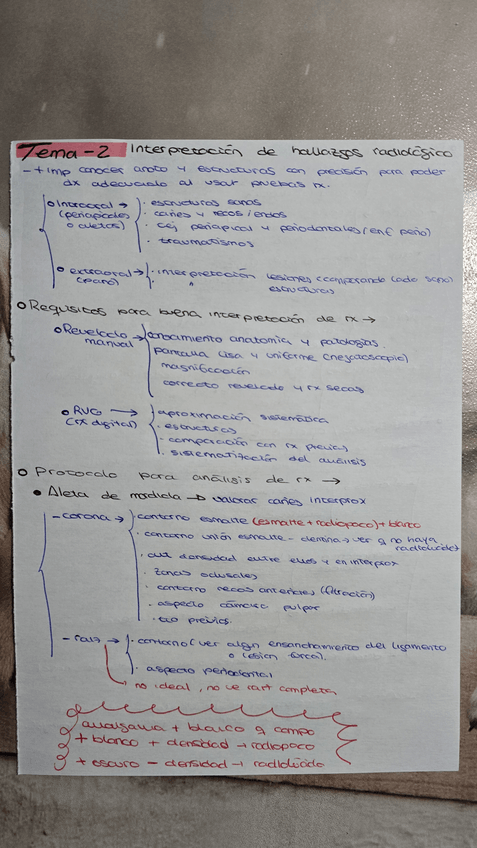 Tema-2 Interpretación de hallazgos radiológico
- + imp conocer anato y estructuras con precisión para poder
dx adecuado al usar pruebas rx.
Intraoral → · estructuras sanas
(periapicales · caries y recos/endos
o aletas) · lej periapical y periodontales (enf perio)
· traumatismos
extraoral → · interpretación lesiones (comparando lado sano)
(pano) · estructuras
Requisitos para buena interpretación de rx →
Revelado → conocimiento anatomia y patologias.
manual pantalla lisa y uniforme (negatoscopio)
magnificación
correcto revelado y rx secas
RVG → aproximación sistemática
(rx digital) · estructuras
· comparación con rx previas
· sistematización del análisis
Protocolo para análisis de rx →
Aleta de mordida → valorar caries interprox
- corona → · contorno esmalte (esmalte + radiopoco) + blanco
· contorno unión esmalte - dentina → ver q no haya
radiolucidez
densidad entre ellos y en interprox
· zonas oclusales
· contorno recos anteriores (filtración)
· aspecto cámara pulpar
· tto previos.
- raiz → · contorno (ver algn ensanchamiento del ligamento
o lesión furca).
· aspecto periodontal
no ideal, no ve rait completa
amalgama + blanco q compo
+ blanco + densidad → radiopoco
+ oscuro - densidad → radiolúcido